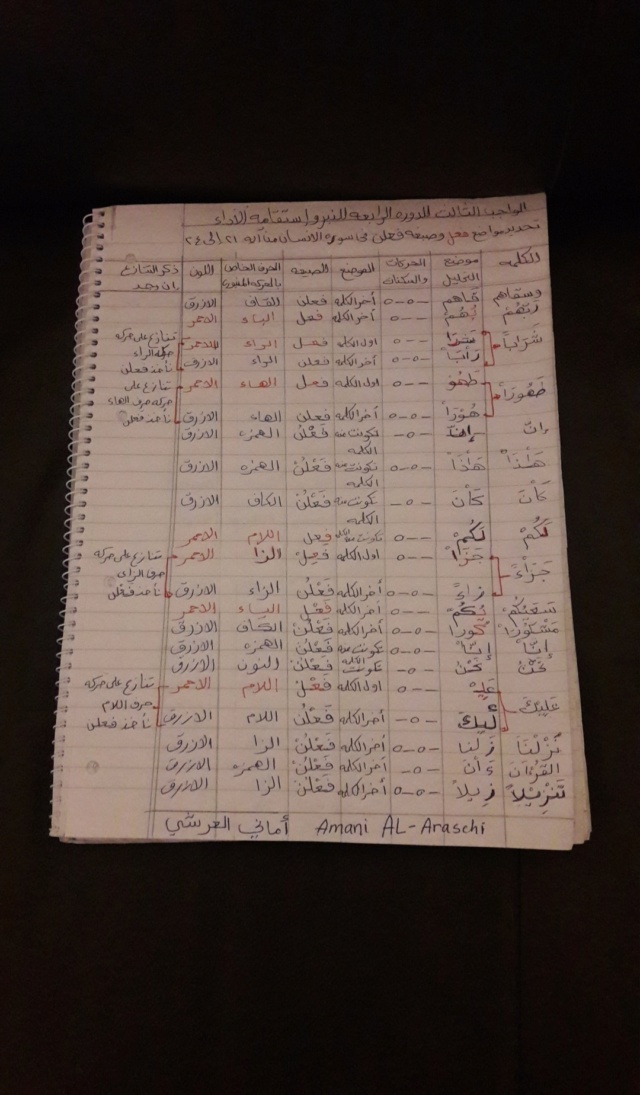 الواجب الثالث للدوره الرابعه للنبر وإستقامة الأداء
تحديد مواضع فعل وصيغه فعلن في سورة الانسان من آيه ٢١ إلى ٢٤
الكلمه موضع التحليل الحركات والسكنات الموضع الصيغه الحرف الخاص بالحركة اللون ذكر التنازع إن وجد
وسقاهم قاهم -ه-ه أخر الكلمه فعلن القاف الازرق
ربهم بهم --ه أخر الكلمه فعل الباء الاحمر
شَرَاباً شرا --ه اول الكلمه فعل الراء الاحمر تنازع على حركه حرف الراء تأخذ فعلن
راباً -ه-ه أخر الكلمه فعلن الراء الازرق
طَهُوراً طهو --ه اول الكلمه فعل الهاء الاحمر تنازع على حركه حرف الهاء تأخذ فعلن
هُوراً -ه-ه أخر الكلمه فعلن الهاء الازرق
إنّ إنّ -ه- تكونت منه الكلمه فَعْلُنْ الهمزه الازرق
هَٰذَا هَٰذَا -ه-ه تكونت منه الكلمه فَعْلُنْ الهمزه الازرق
كَانَ كَانَ -ه- تكونت منه الكلمه فَعْلُنْ الكاف الازرق
لَكُمْ لَكُمْ --ه تكونت منه الكلمه فعل اللام الاحمر
جَزَاءً جَزَا --ه اول الكلمه فعل الزا الاحمر تنازع على حركه حرف الزاي تأخذ فعلن
زاءً -ه-ه أخر الكلمه فَعْلُنْ الزاء الازرق
سَعْيُكُم يُكُمْ --ه أخر الكلمه فعل الياء الاحمر
مَشْكُورًا كُورا -ه-ه أخر الكلمه فَعْلُنْ الكاف الازرق
إِنَّا إِنَّا -ه-ه تكونت منه الكلمه فَعْلُنْ الهمزه الازرق
نَحْنُ نَحْنُ -ه- تكونت الكلمه فَعْلُنْ النون الازرق
عَلَيْكَ عَلَيْ --ه اول الكلمه فَعْل اللام الاحمر تنازع على حركه حرف اللام تأخذ فعلن
لَيْكَ -ه- أخر الكلمه فَعْلُنْ اللام الازرق
نَزَّلْنَا زَلْنا -ه-ه أخر الكلمه فَعْلُنْ الزا الازرق
القُرْءَانَ ءَانَ -ه- أخر الكلمه فَعْلُنْ الهمزه الازرق
تَنْزِيلاً زِيلاً -ه-ه أخر الكلمه فَعْلُنْ الزا الازرق
أماني العرشي Amani AL-Araschi